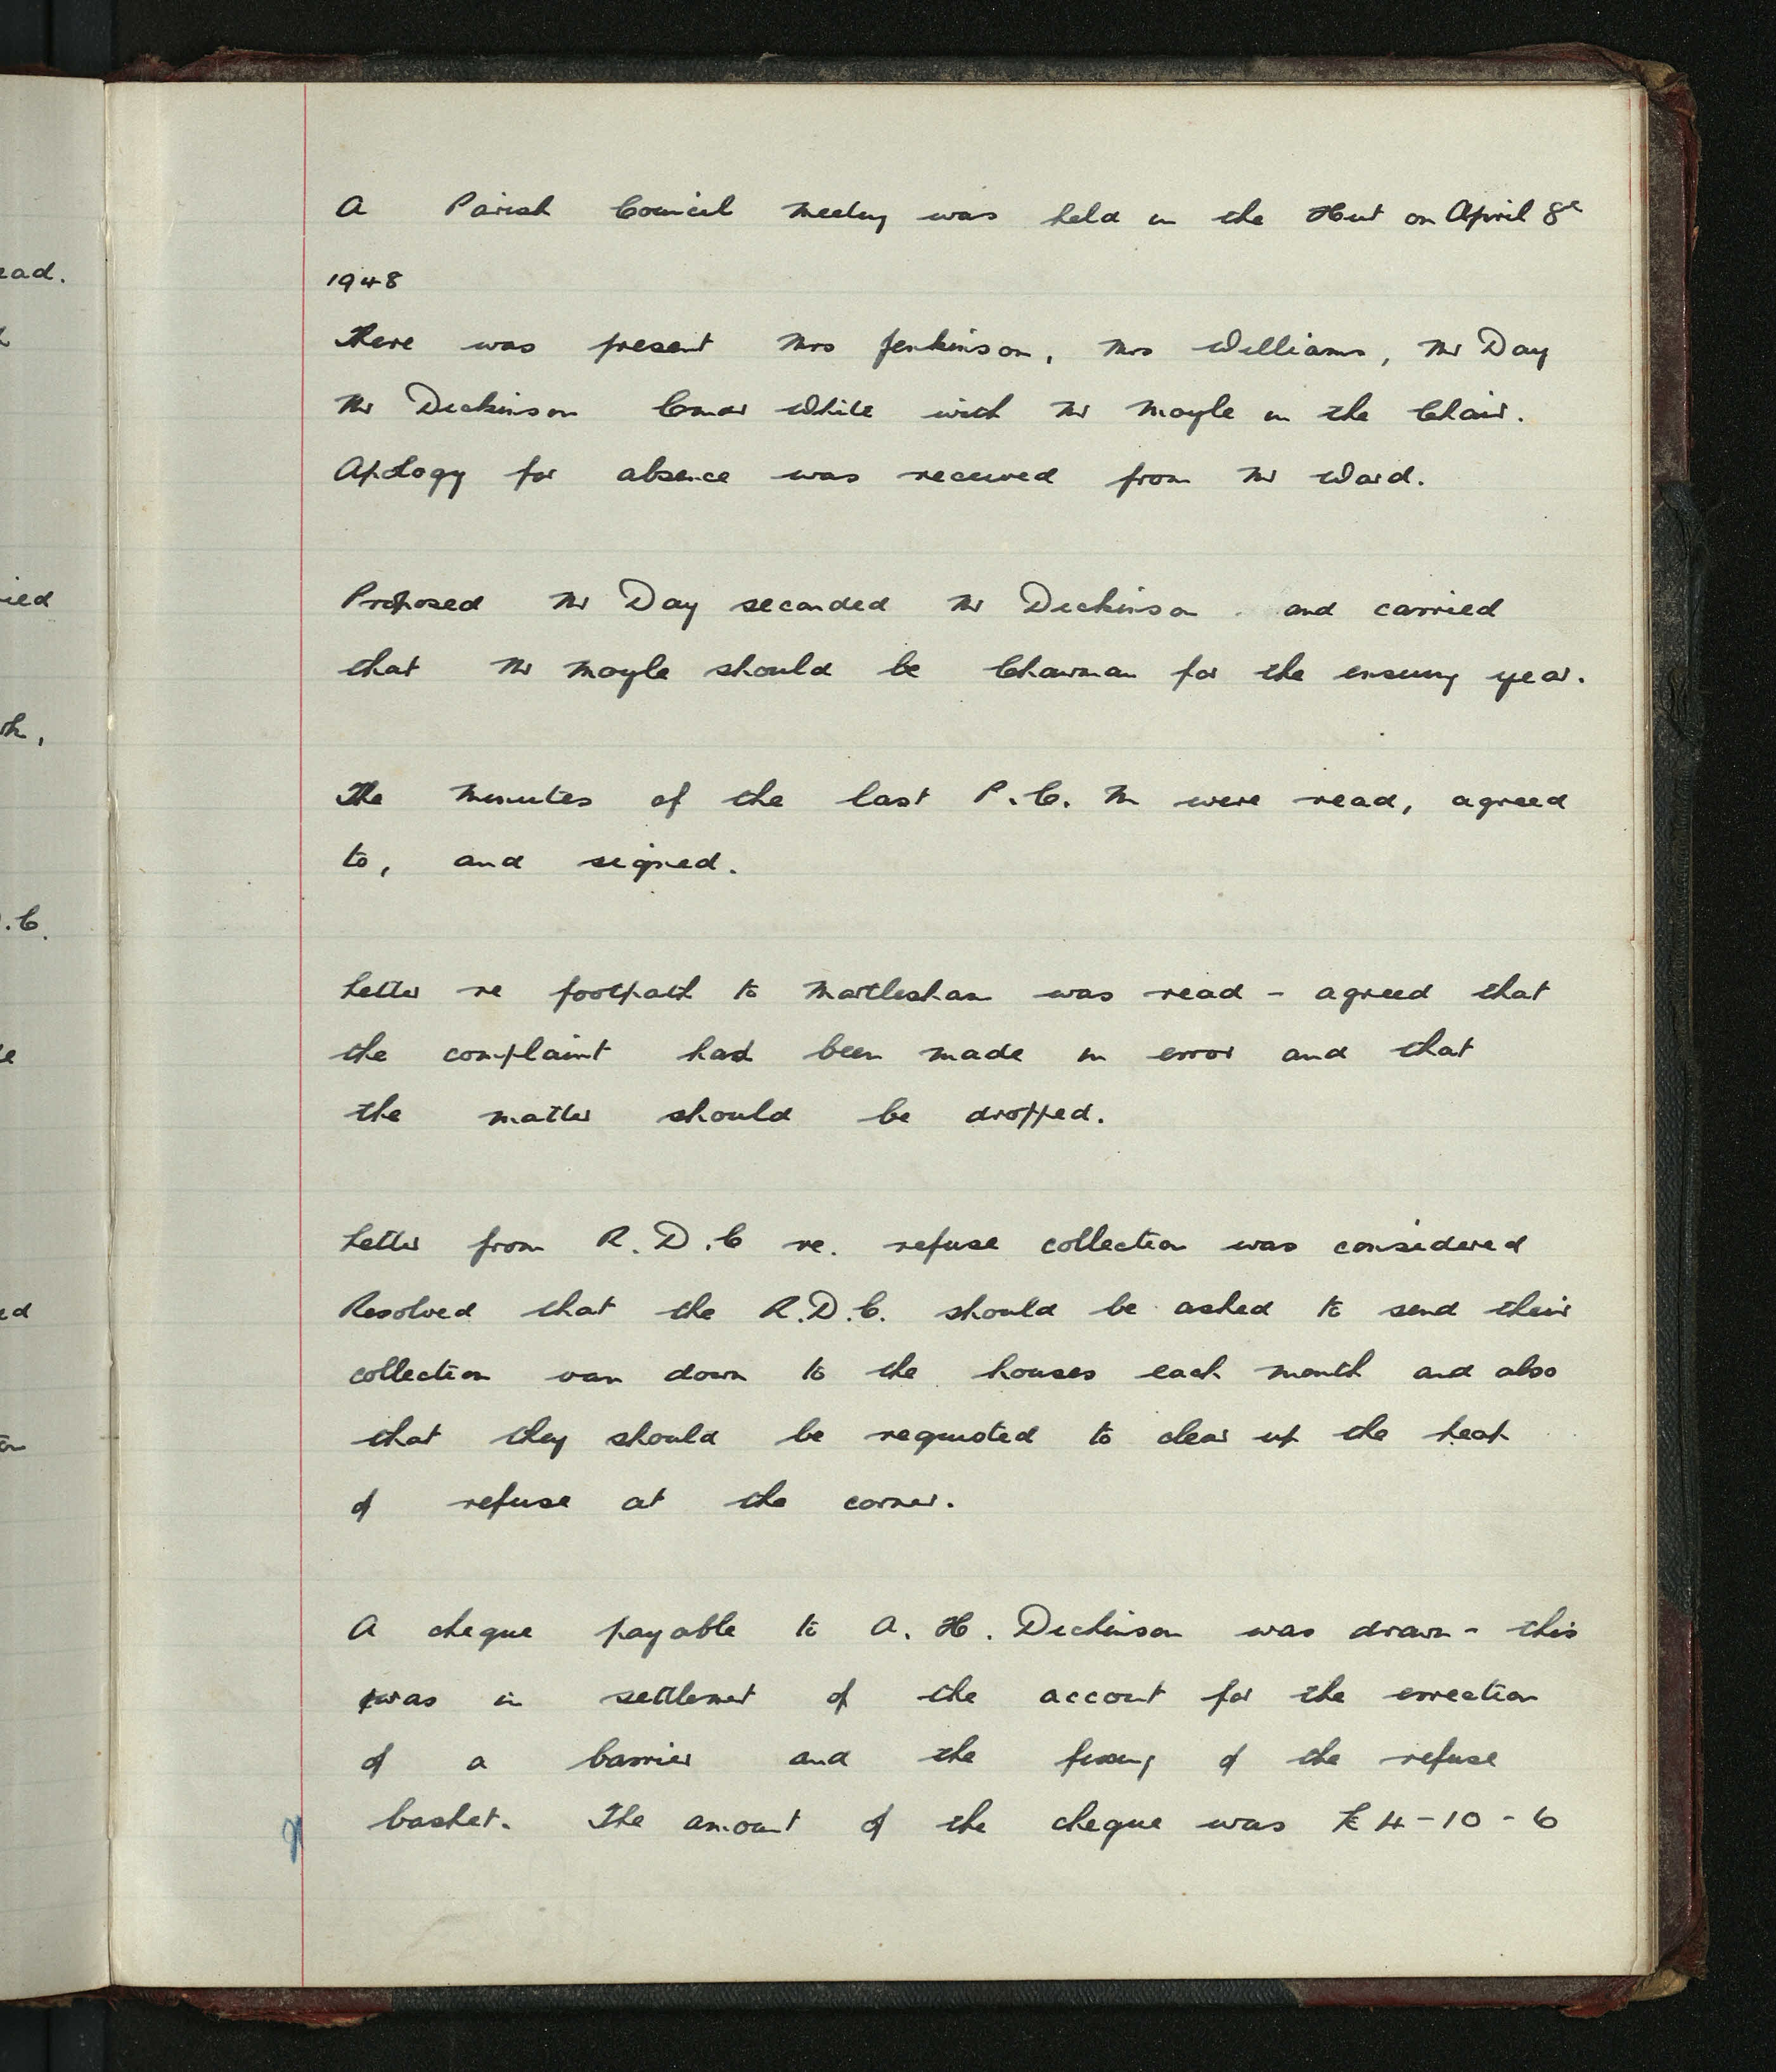 A Parish Council Meeting was held in the Hut on April 8th
1948
There was present Mrs Jenkinson, Mrs Williams, Mr Day
Mr Dickinson Cmdr White with Mr Moyle in the Chair.
Apology for absence was received from Mr Ward.
Proposed Mr Day seconded Mr Dickinson and carried
that Mr Moyle should be Chairman for the ensuing year.
The Minutes of the last P.C.M were read, agreed
to, and signed.
Letter re footpath to Martlesham was read - agreed that
the complaint had been made in error and that
the matter should be dropped.
Letter from R.D.C re. refuse collection was considered
Resolved that the R.D.C. should be asked to send their
collection van down to the houses each month and also
that they should be requested to clear up the heap
of refuse at the corner.
A cheque payable to A. H. Dickinson was drawn - this
was in settlement of the account for the errection
of a barrier and the fixing of the refuse
basket. The amount of the cheque was £4-10-6